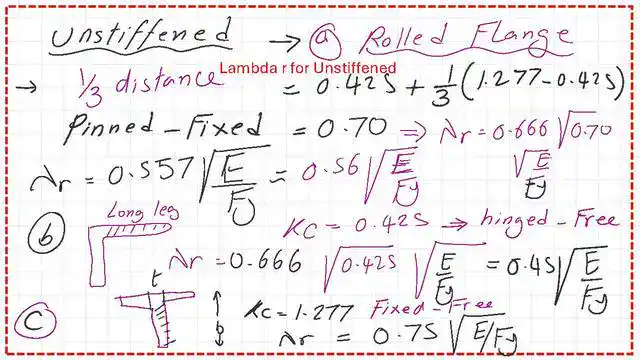 Unstiffened → ⓐ Rolled Flange
Lambda r for Unstiffened
→ 1/3 distance = 0.425 + 1/3 (1.277-0.425)
Pinned-Fixed = 0.70 ⇒ λr = 0.666 √0.70 √E/Fy
λr = 0.557 √E/Fy = 0.56 √E/Fy
ⓑ Long leg Kc = 0.425 ⇒ hinged-Free
λr = 0.666 √0.425 √E/Fy = 0.45 √E/Fy
ⓒ t Kc = 1.277 Fixed-Free
λr = 0.75 √E/Fy